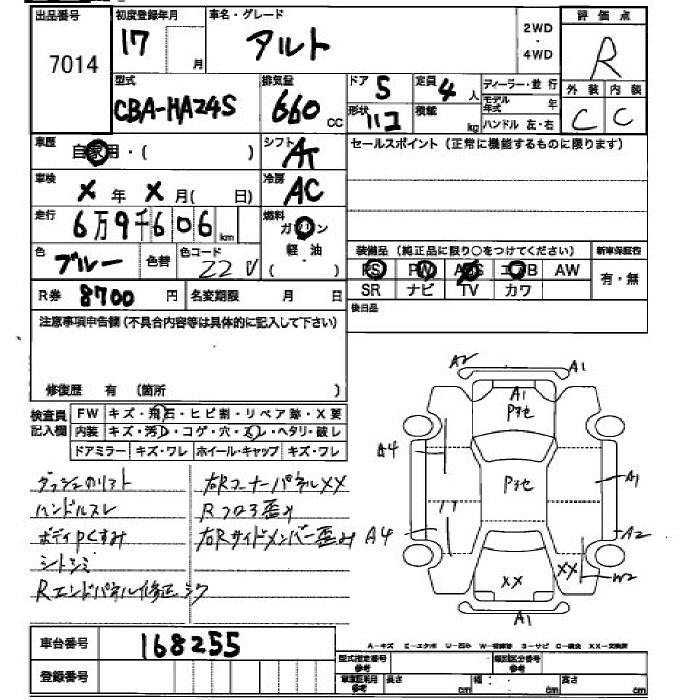 出品番号 初度登録年月 車名・グレード 2WD・4WD 評価点
7014 17 月 アルト R
型式 排気量 ドア 5 定員 4 人 ディーラー・並行 外装 内装
CBA-HA24S 660 cc 形状 ハコ 積載 kg モデル年式 年 C C
ハンドル 左・右
車歴 自家用・( ) シフト AT セールスポイント(正常に機能するものに限ります)
車検 X 年 X 月( 日) 冷房 AC
走行 6万9千606 km 燃料 ガソリン
軽油
( )
色 ブルー 色替 色コード Z2U 装備品(純正品に限り○をつけてください) 新車保証書
PS PW ABS エアB AW 有・無
R券 8700 円 名変期限 月 日 SR ナビ TV カワ
注意事項申告欄(不具合内容等は具体的に記入して下さい) 後日品
修復歴 有 (箇所 )
検査員記入欄 FW キズ・飛石・ヒビ割・リペア跡・X要
内装 キズ・汚レ・コゲ・穴・スレ・ヘタリ・破レ
ドアミラー キズ・ワレ ホイール・キャップ キズ・ワレ
右Rコーナーパネル XX
ハンドルスレ Rフロア歪み
ボディPくすみ 右Rサイドメンバー歪み
シートシミ
Rエンドパネル修正
A2 A1
A1
Pヨセ
A4 Pヨセ A1
A4 A2
XX XX W2
A1
車台番号 168255
登録番号
A-キズ E-エクボ U-凹み W-補修跡 S-サビ C-腐食 XX-交換済
型式指定番号 参考 類別区分番号 参考
車庫証明用 参考 長さ cm 幅: cm 高さ cm